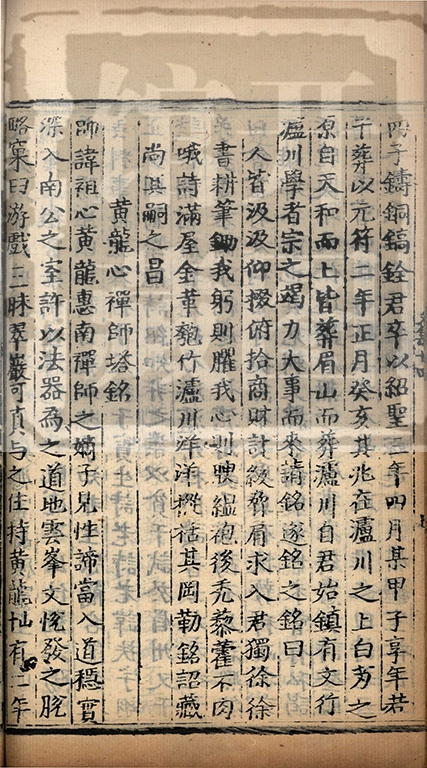 四子鑄銅鎬銓君卒以紹聖三年四月某甲子享年若
干葬以元符二年正月癸亥其兆在瀘川之上白芀之
原自天和而上皆葬眉山而葬瀘川自君始鎮有文行
瀘川學者宗之竭力大事而來請銘遂銘之銘曰
人皆汲汲仰掇俯拾商財計級脅肩求入君獨徐徐
書耕筆鋤我躬則臞我心則腴縕袍後禿藜藿不肉
哦詩滿屋金革匏竹瀘川洋洋樅栝其岡勒銘詔藏
尚其嗣之昌
黃龍心禪師塔銘
師諱祖心黃龍惠南禪師之嫡子見性諦當入道穩實
深入南公之室許以法器為之道地雲峯文悅發之脫
略窠臼游戲三昧翠巖可真與之住持黃龍十有二年